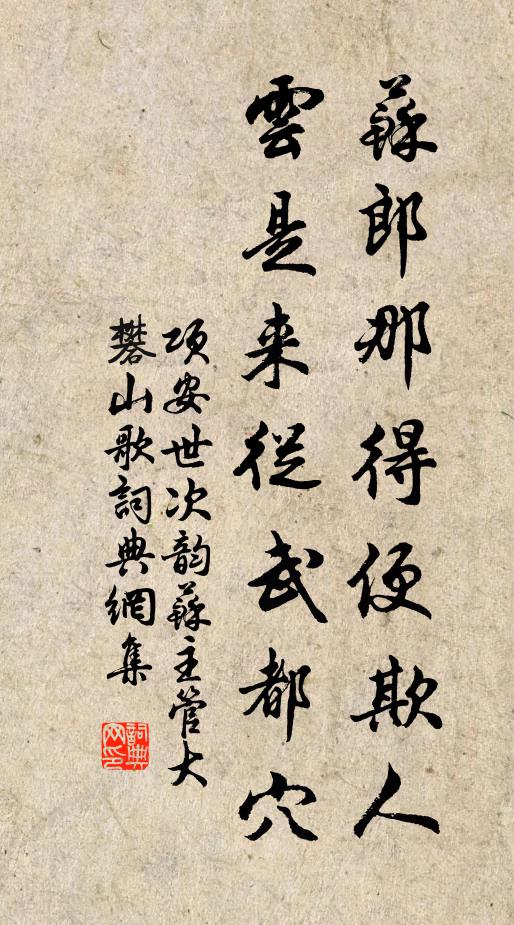 蘇郎那得便欺人
雲是来從武都穴
項安世次韵蘇主管大
礬山歌詞典網集
詞典
网印